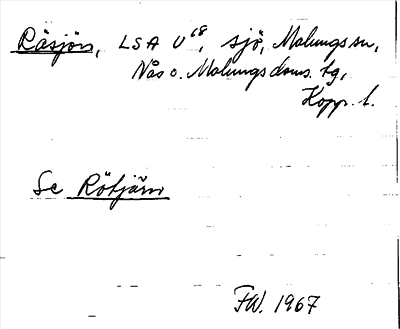 Råsjön, LSA U¹⁸, sjö, Malungs sn,
Nås o. Malungs doms. tg,
Kopp. l.
Se Rötjärn
FW. 1967